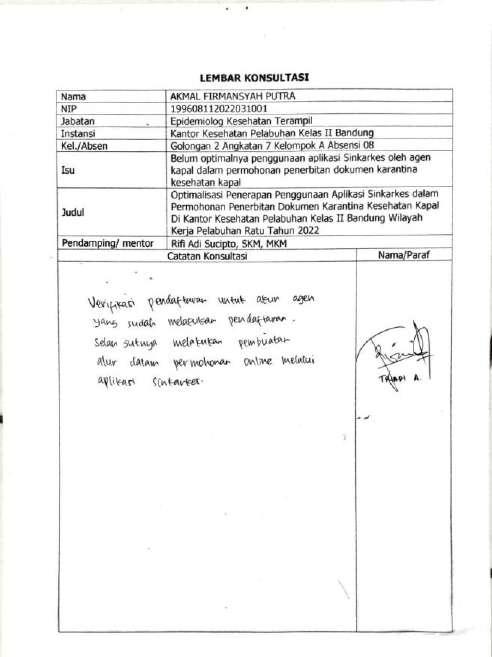 LEMBAR KONSULTASI
Nama AKMAL FIRMANSYAH PUTRA
NIP 199608112022031001
Jabatan Epidemiolog Kesehatan Terampil
Instansi Kantor Kesehatan Pelabuhan Kelas II Bandung
Kel./Absen Golongan 2 Angkatan 7 Kelompok A Absensi 08
Isu Belum optimalnya penggunaan aplikasi Sinkarkes oleh agen
kapal dalam permohonan penerbitan dokumen karantina
kesehatan kapal
Judul Optimalisasi Penerapan Penggunaan Aplikasi Sinkarkes dalam
Permohonan Penerbitan Dokumen Karantina Kesehatan Kapal
Di Kantor Kesehatan Pelabuhan Kelas II Bandung Wilayah
Kerja Pelabuhan Ratu Tahun 2022
Pendamping/ mentor Rifi Adi Sucipto, SKM, MKM
Catatan Konsultasi Nama/Paraf
Verifikasi pendaftaran untuk akun agen
yang sudah melakukan pendaftaran.
Selan sutnya melakukan pembuatan
alur dalam permohonan online melalui
aplikasi sinkarkes.
A.